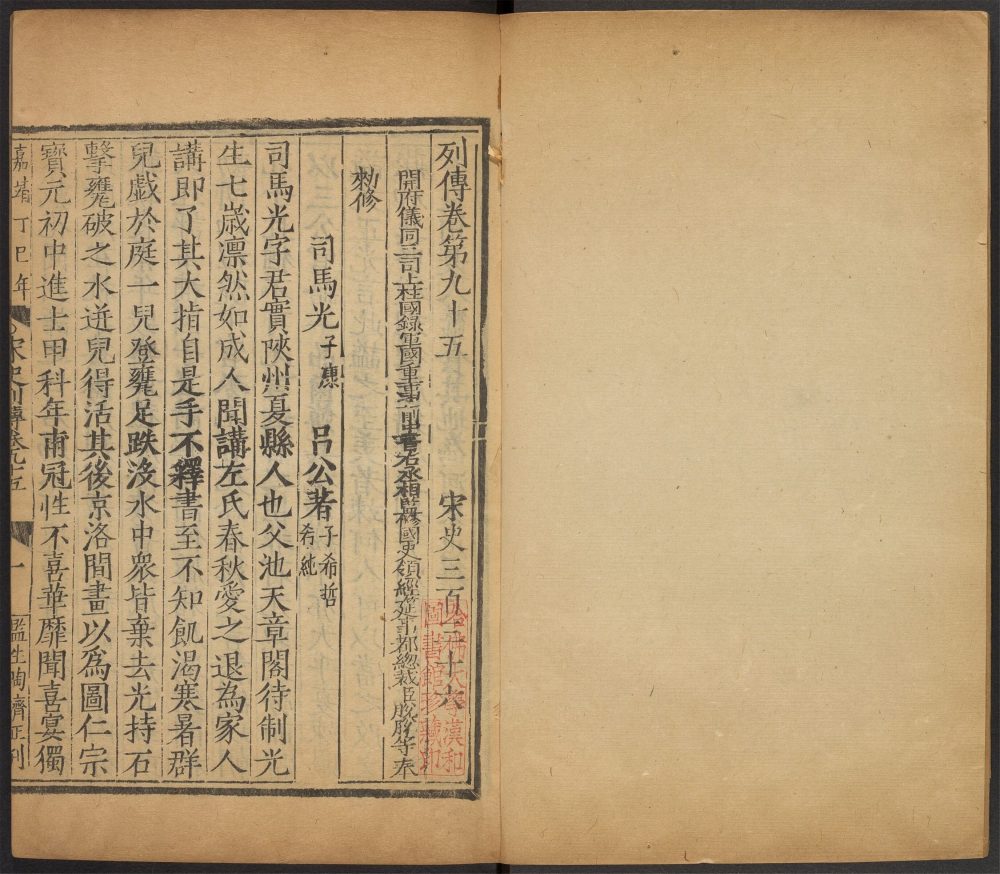 列傳卷第九十五 宋史三百三十六
開府儀同三司上柱國錄軍國重事前中書右丞相監修國史領經筵事都總裁臣脫脫等奉
勑修
司馬光子康 呂公著子希哲 希純
司馬光字君實陝州夏縣人也父池天章閣待制光
生七歲凛然如成人聞講左氏春秋愛之退為家人
講即了其大指自是手不釋書至不知飢渴寒暑群
兒戲於庭一兒登甕足跌沒水中衆皆棄去光持石
擊甕破之水迸兒得活其後京洛間畫以為圖仁宗
寶元初中進士甲科年甫冠性不喜華靡聞喜宴獨
嘉靖丁巳年 宋史列傳卷九十五 一 監生陶濟正刊
哈佛大學漢和
圖書館珍藏印